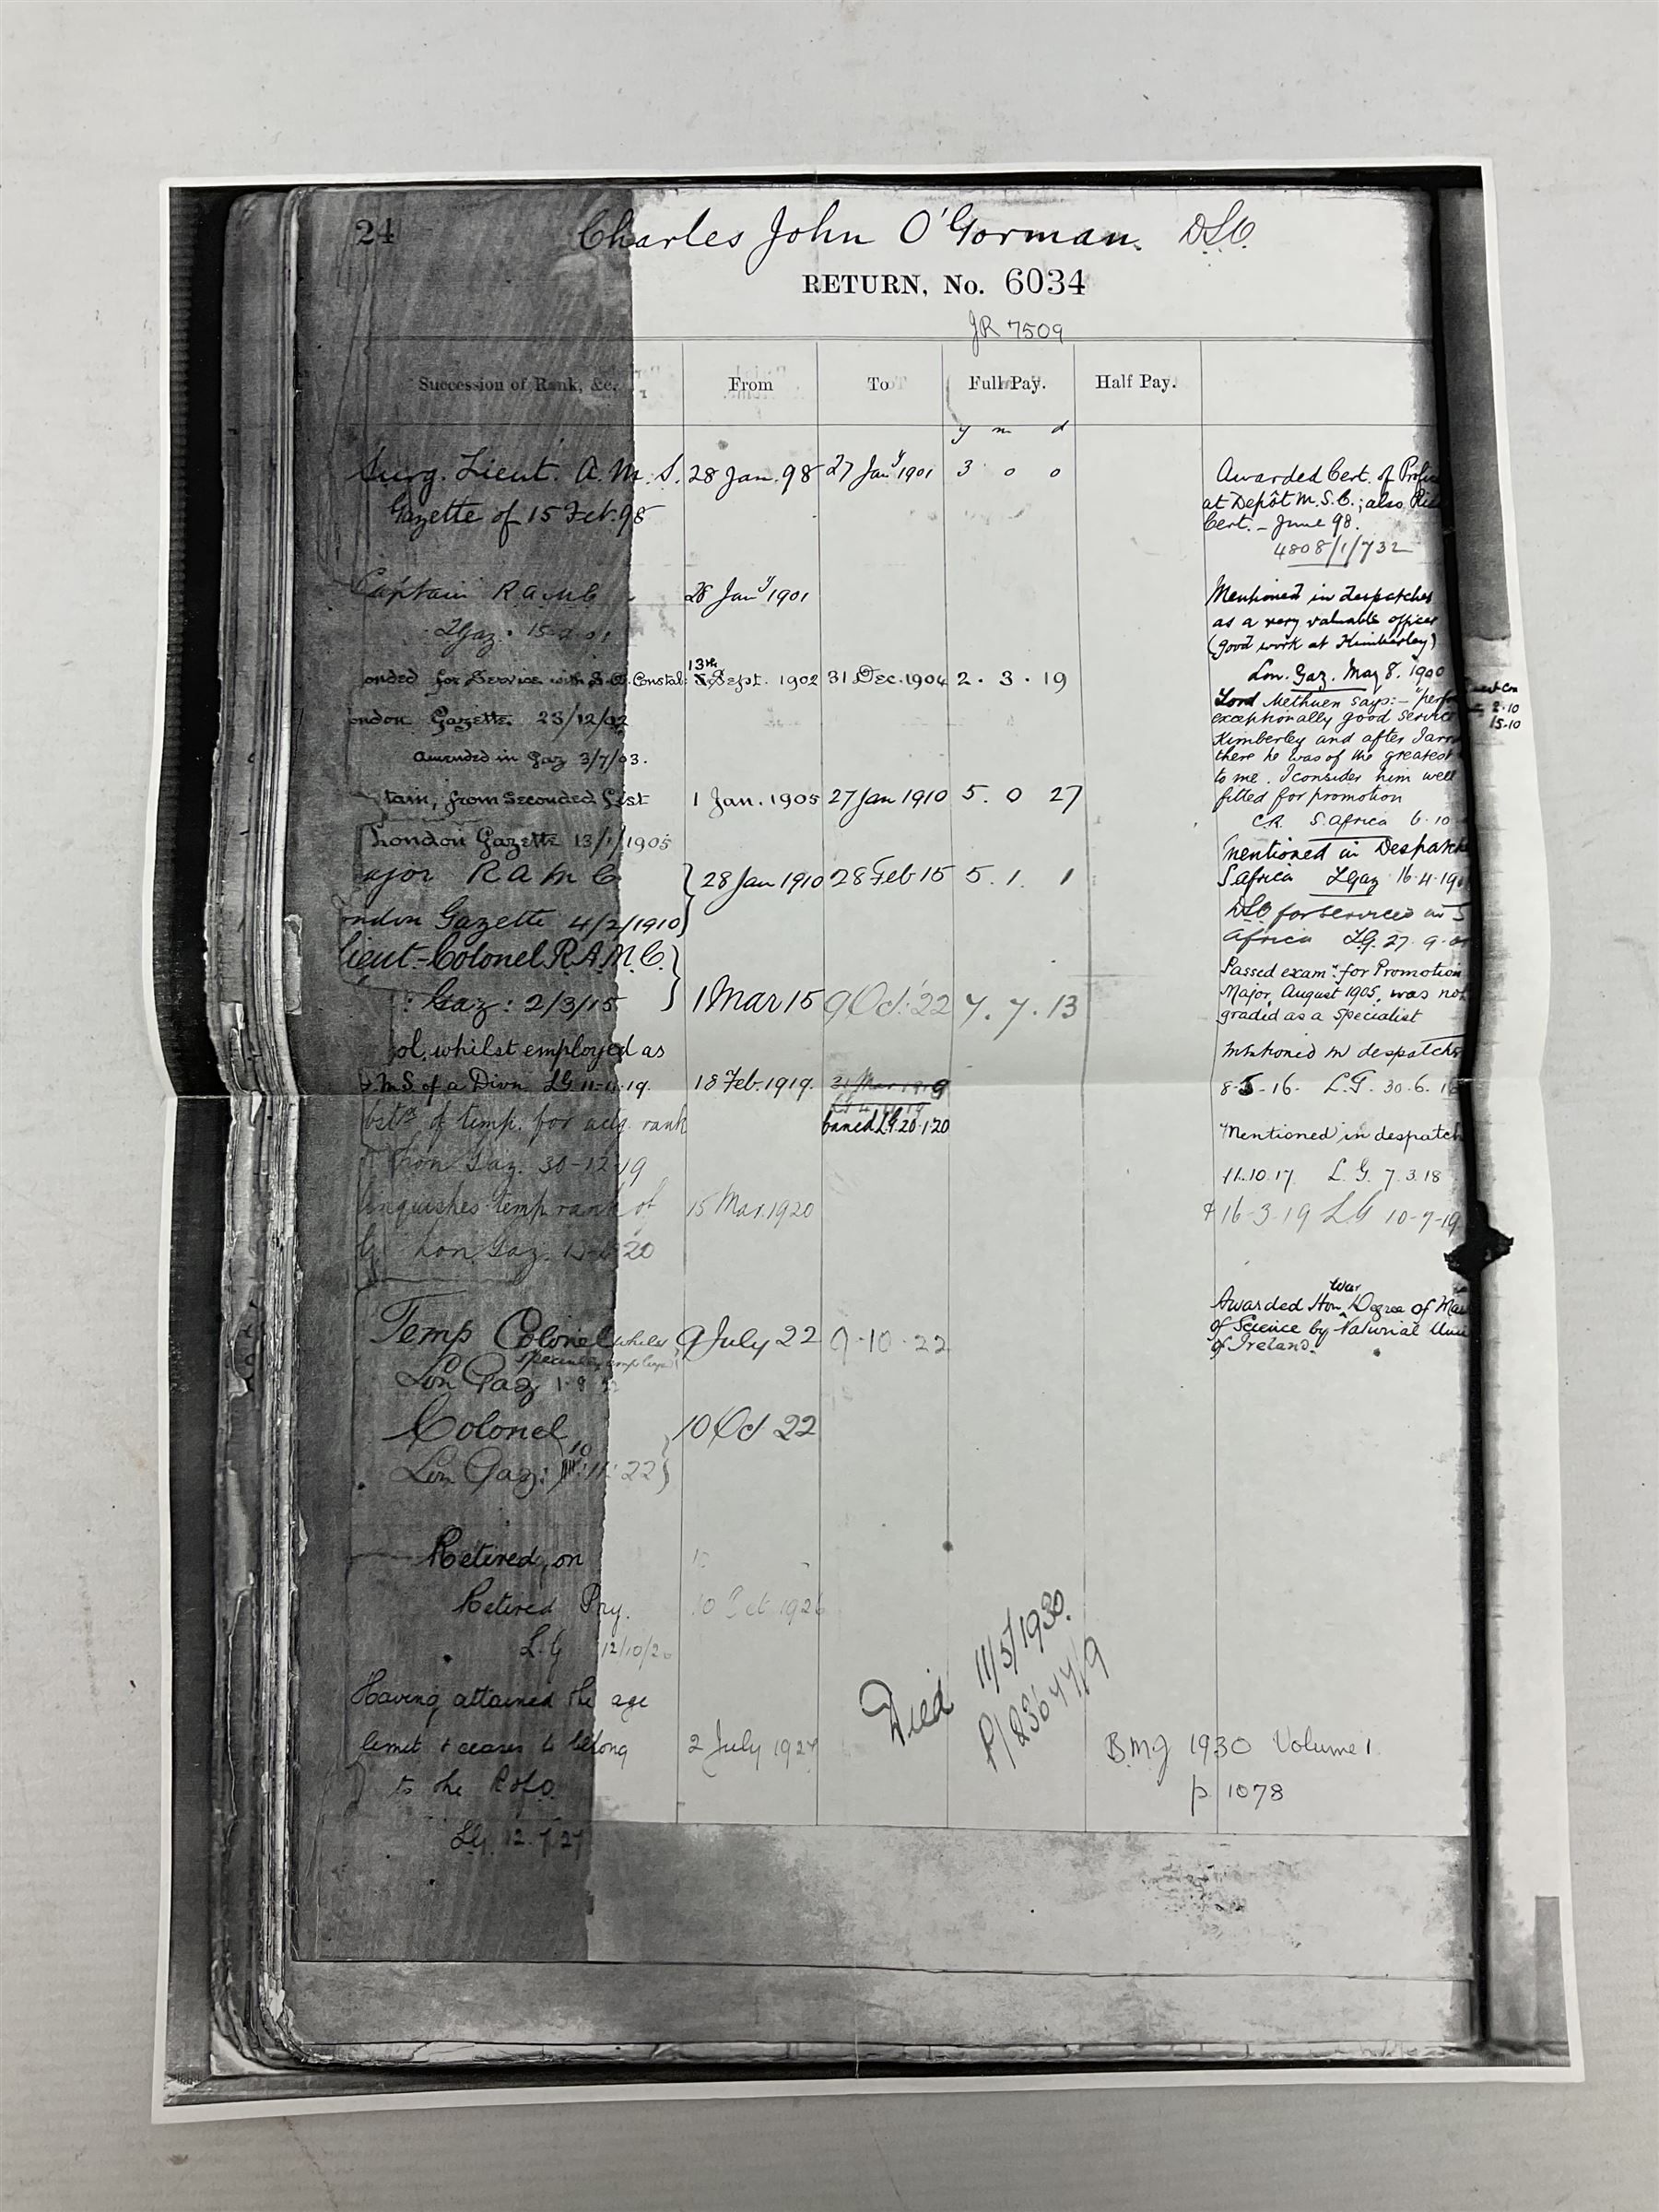 24
Charles John O'Gorman. DSO.
RETURN, No. 6034
JR 7509
Succession of Rank, &c. From To Full Pay. Half Pay.
y m d
Surg. Lieut. A.M.S. 28 Jan. 98 27 Jany 1901 3 0 0
Gazette of 15 Feb. 98
Captain RAMC 28 Jany 1901
onded for Service with S.A. Constab: 13th Sept. 1902 31 Dec. 1904 2. 3. 19
ondon Gazette 23/12/02
amended in Gaz 3/7/03.
tain, from Seconded List 1 Jan. 1905 27 Jan 1910 5. 0 27
London Gazette 13/1/1905
ajor RAMC 28 Jan 1910 28 Feb 15 5. 1. 1
ndon Gazette 4/2/1910
Lieut-Colonel R.A.M.C.
Gaz: 2/3/15 1 Mar 15 9 Oct: 22 7. 7. 13
ol. whilst employed as
D.M.S. of a Divn LG 11-4-19. 18 Feb. 1919.
LG. 20.1.20
of temp. for actg. rank
Lon Gaz. 30-12-19
linquishes temp rank of 15 Mar. 1920
Lon Gaz.
Temp Colonel whilst 9 July 22 9-10-22
specially employed
Lon Gaz 1-9-22
Colonel 10 Oct 22
Lon Gaz: 10 11: 22
Retired, on
Retired Pay. 10 Oct 1926
L.G 12/10/2
Having attained the age
limit & ceases to belong 2 July 1927
to the RofO.
LG. 12.7.27
Died 11/5/1930.
BMJ 1930 Volume 1
p. 1078
Awarded Cert. of Profi
at Depôt M.S.C.; also Ri
Cert. – June 98.
4808/1/732
Mentioned in despatches
as a very valuable officer
(good work at Kimberley)
Lon. Gaz. May 8. 1900
Lord Methuen says:– "perf
exceptionally good service
Kimberley and after
there he was of the greatest
to me. I consider him well
fitted for promotion
C.R. S. Africa 6.10
2.10
15.10
Mentioned in Despatch
S. Africa LGaz 16.4.19
DSO for services in S
Africa LG. 27. 9. 01
Passed examn. for Promotion
Major, August 1905, was not
graded as a Specialist
Mentioned in despatches
8-5-16. L.G. 30.6.16
"Mentioned" in despatch
11.10.17 L.G. 7.3.18
& 16-3-19 LG 10-7-19
Awarded Hon. War Degree of Mas
of Science by National Uni
of Ireland.